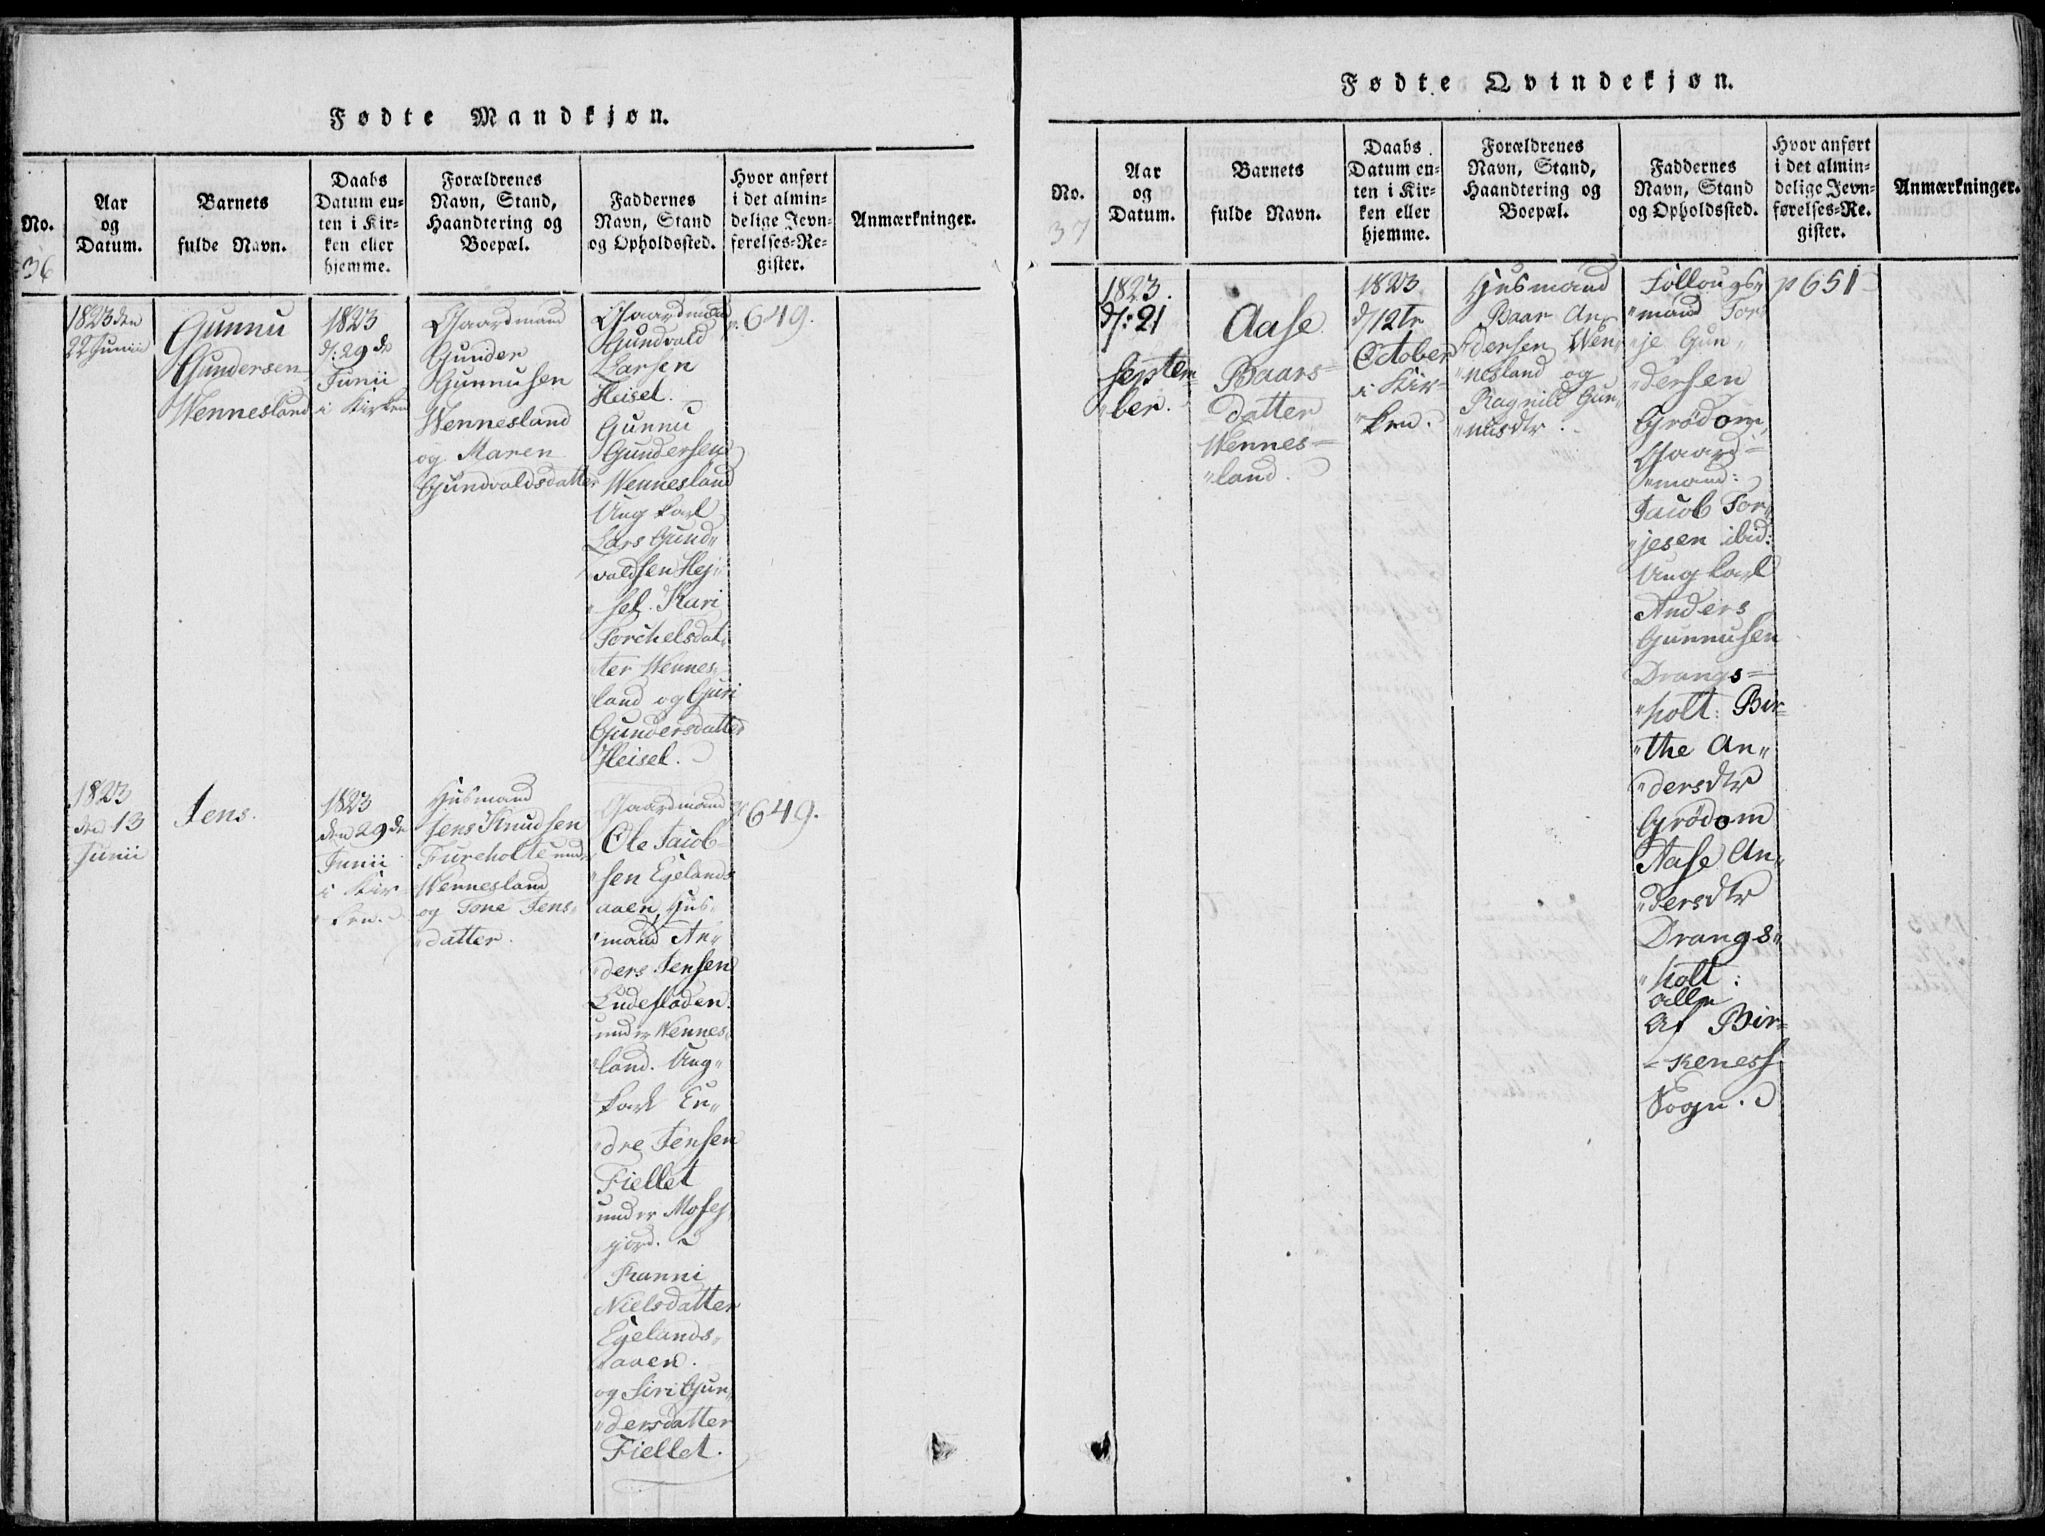 Fødte Mandkjøn.
No.
Aar
og
Datum.
Barnets
fulde Navn.
Daabs
Datum en-
ten i Kir-
ken eller
hjemme.
Forældrenes
Navn, Stand,
Haandtering og
Boepæl.
Faddernes
Navn, Stand
og Opholdssted.
Hvor anført
i det almin-
delige Jevn-
førelses-Re-
gister.
Anmærkninger.
36
1823 den
22 Junii
Gunnu
Gundersen
Wennesland
1823
d: 29de
Junii
i Kirken
Gaardmand
Gunder
Gunnusen
Wennesland
og Maren
Gundvaldsdatter
Gaardmand
Gundvald
Larsen
Heisel.
Gunnu
Gundersen
Wennesland
Ung karl
Lars Gund„
„valdsen Hej„
„sel. Kari
Torchelsdat„
„ter Wennes„
„land og Guri
Gundersdatter
Heisel.
p. 649.
1823
den 13
Junii
Jens.
1823
den 29de
Junii
i Kir
„ken.
Husmand
Jens Knudsen
Fureholte under
Wennesland
og Tone Jens„
„datter.
Gaardmand
Ole Jacob
„sen Egelands
aaen, Hus„
„mand An„
„ders Jensen
Ludesladen
under Wennes„
„land. Ung„
karl En„
„dre Jensen
Fiellet
under Mosej„
gjord.
Kanni
Nielsdatter
Egelands„
„aaen.
og Siri Gun„
„dersdatter
Fiellet.
p 649.
Fødte Qvindekjøn.
No.
Aar
og
Datum.
Barnets
fulde Navn.
Daabs
Datum en-
ten i Kir-
ken eller
hjemme.
Forældrenes
Navn, Stand,
Haandtering og
Boepæl.
Faddernes
Navn, Stand
og Opholdssted.
Hvor anført
i det almin-
delige Jevn-
førelses-Re-
gister.
Anmærkninger.
37
1823.
d: 21
Septem„
„ber.
Aase
Baars=
datter
Wennes=
„land.
1823
d/12te
October
i Kir=
„ken.
Husmand
Baar An„
„dersen Wen„
„nesland og
Ragnild Gun„
„nusdtr.
Føllougs„
„mand Tor„
„je Gun„
„dersen
Grødom,
Gaard=
„mand:
Jacob Tor„
„jesen ibid:
Ung karl
Anders
Gunnusen
Drangs=
„holt: Bir=
„the An„
„dersdtr
Grødom
Aase An„
„dersdtr
Drangs„
„holt:
alle
af Bir=
=keness
Sogn.
p 651